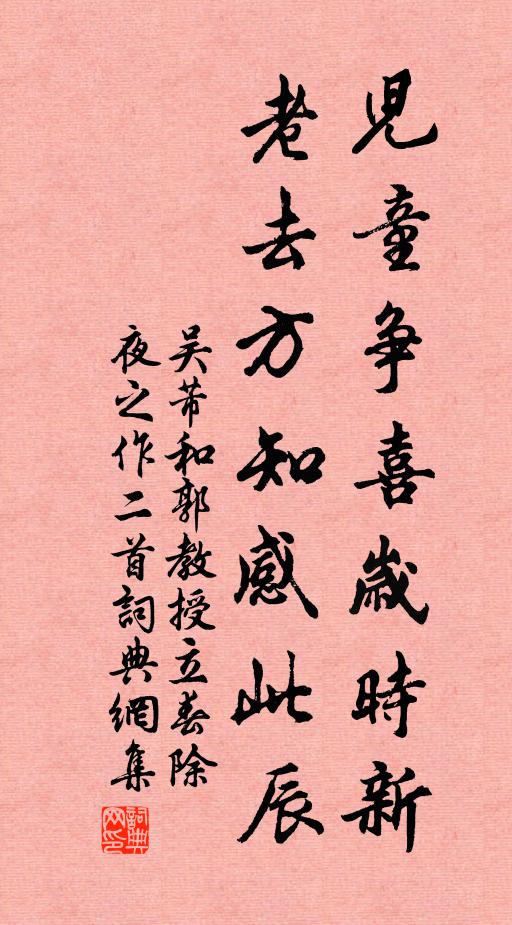 兒童争喜歲時新
老去方知感此辰
吴芾和郭教授立春除
夜之作二首詞典網集
詞典网印